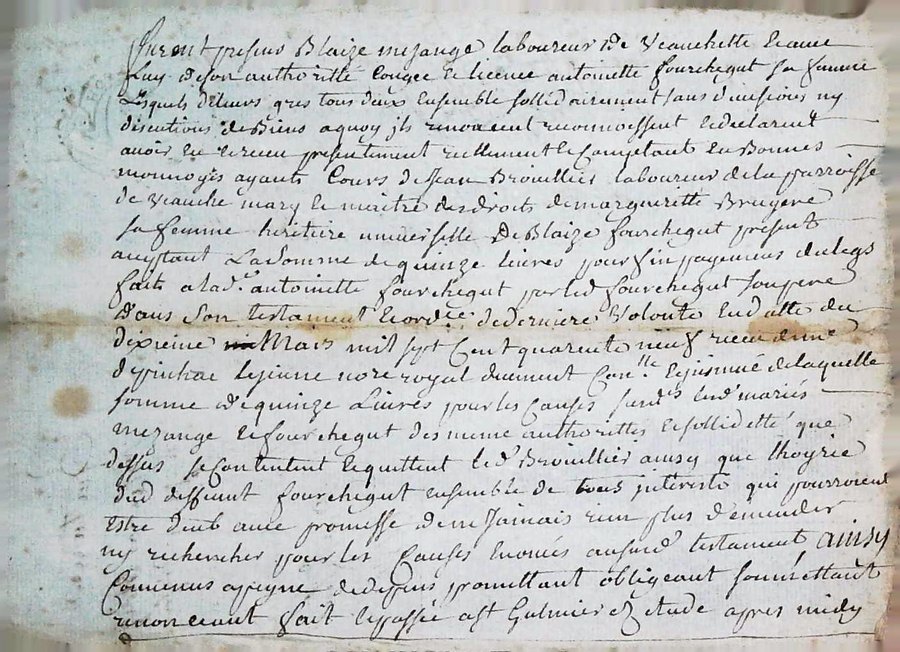 furent presens Blaize mezange laboureur de Veauchette et avec
luy de son authoritté congée et licence antoinette fourchegut sa femme
Lesquels de leurs grés tous deux ensemble sollidairement sans divisions ny
discutions de Biens a quoy ils renoncent reconnoissent et declarent
avoir eu et receu presentement reellement et Comptant en Bonnes
monnoyes ayants Cours de Jean Brouillier laboureur de la parroisse
de Veauche mary et maitre des droits de margueritte Bruyere
sa femme heritiere universelle de Blaize fourchegut present
acceptant La somme de quinze livres pour fin payement du legs
faits a lad.e antoinette fourchegut par led fourchegut son pere
dans son testament et ord.ce de derniere Volonté en datte du
dixieme Mars mil sept Cent quarente neuf receu de me
depinhac lejeune no.re royal duement Con.llé et insinué de laquelle
somme de quinze Livres pour les Causes susd.s lesd mariés
mezange et fourchegut des meme authorittés et solliditté que
dessus se Contentent et quittent led Brouillier ainsy que lhoyrie
dud deffunt fourchegut ensemble de tous interests qui pourroient
estre deub avec promesse de ne Jamais rien plus demender
ny rechercher pour les Causes enoncés ausud testament ainsy
Convenus a peyne de depens promettant obligeant soumettant
renonceant fait et passée a st Galmier Etude apres midy